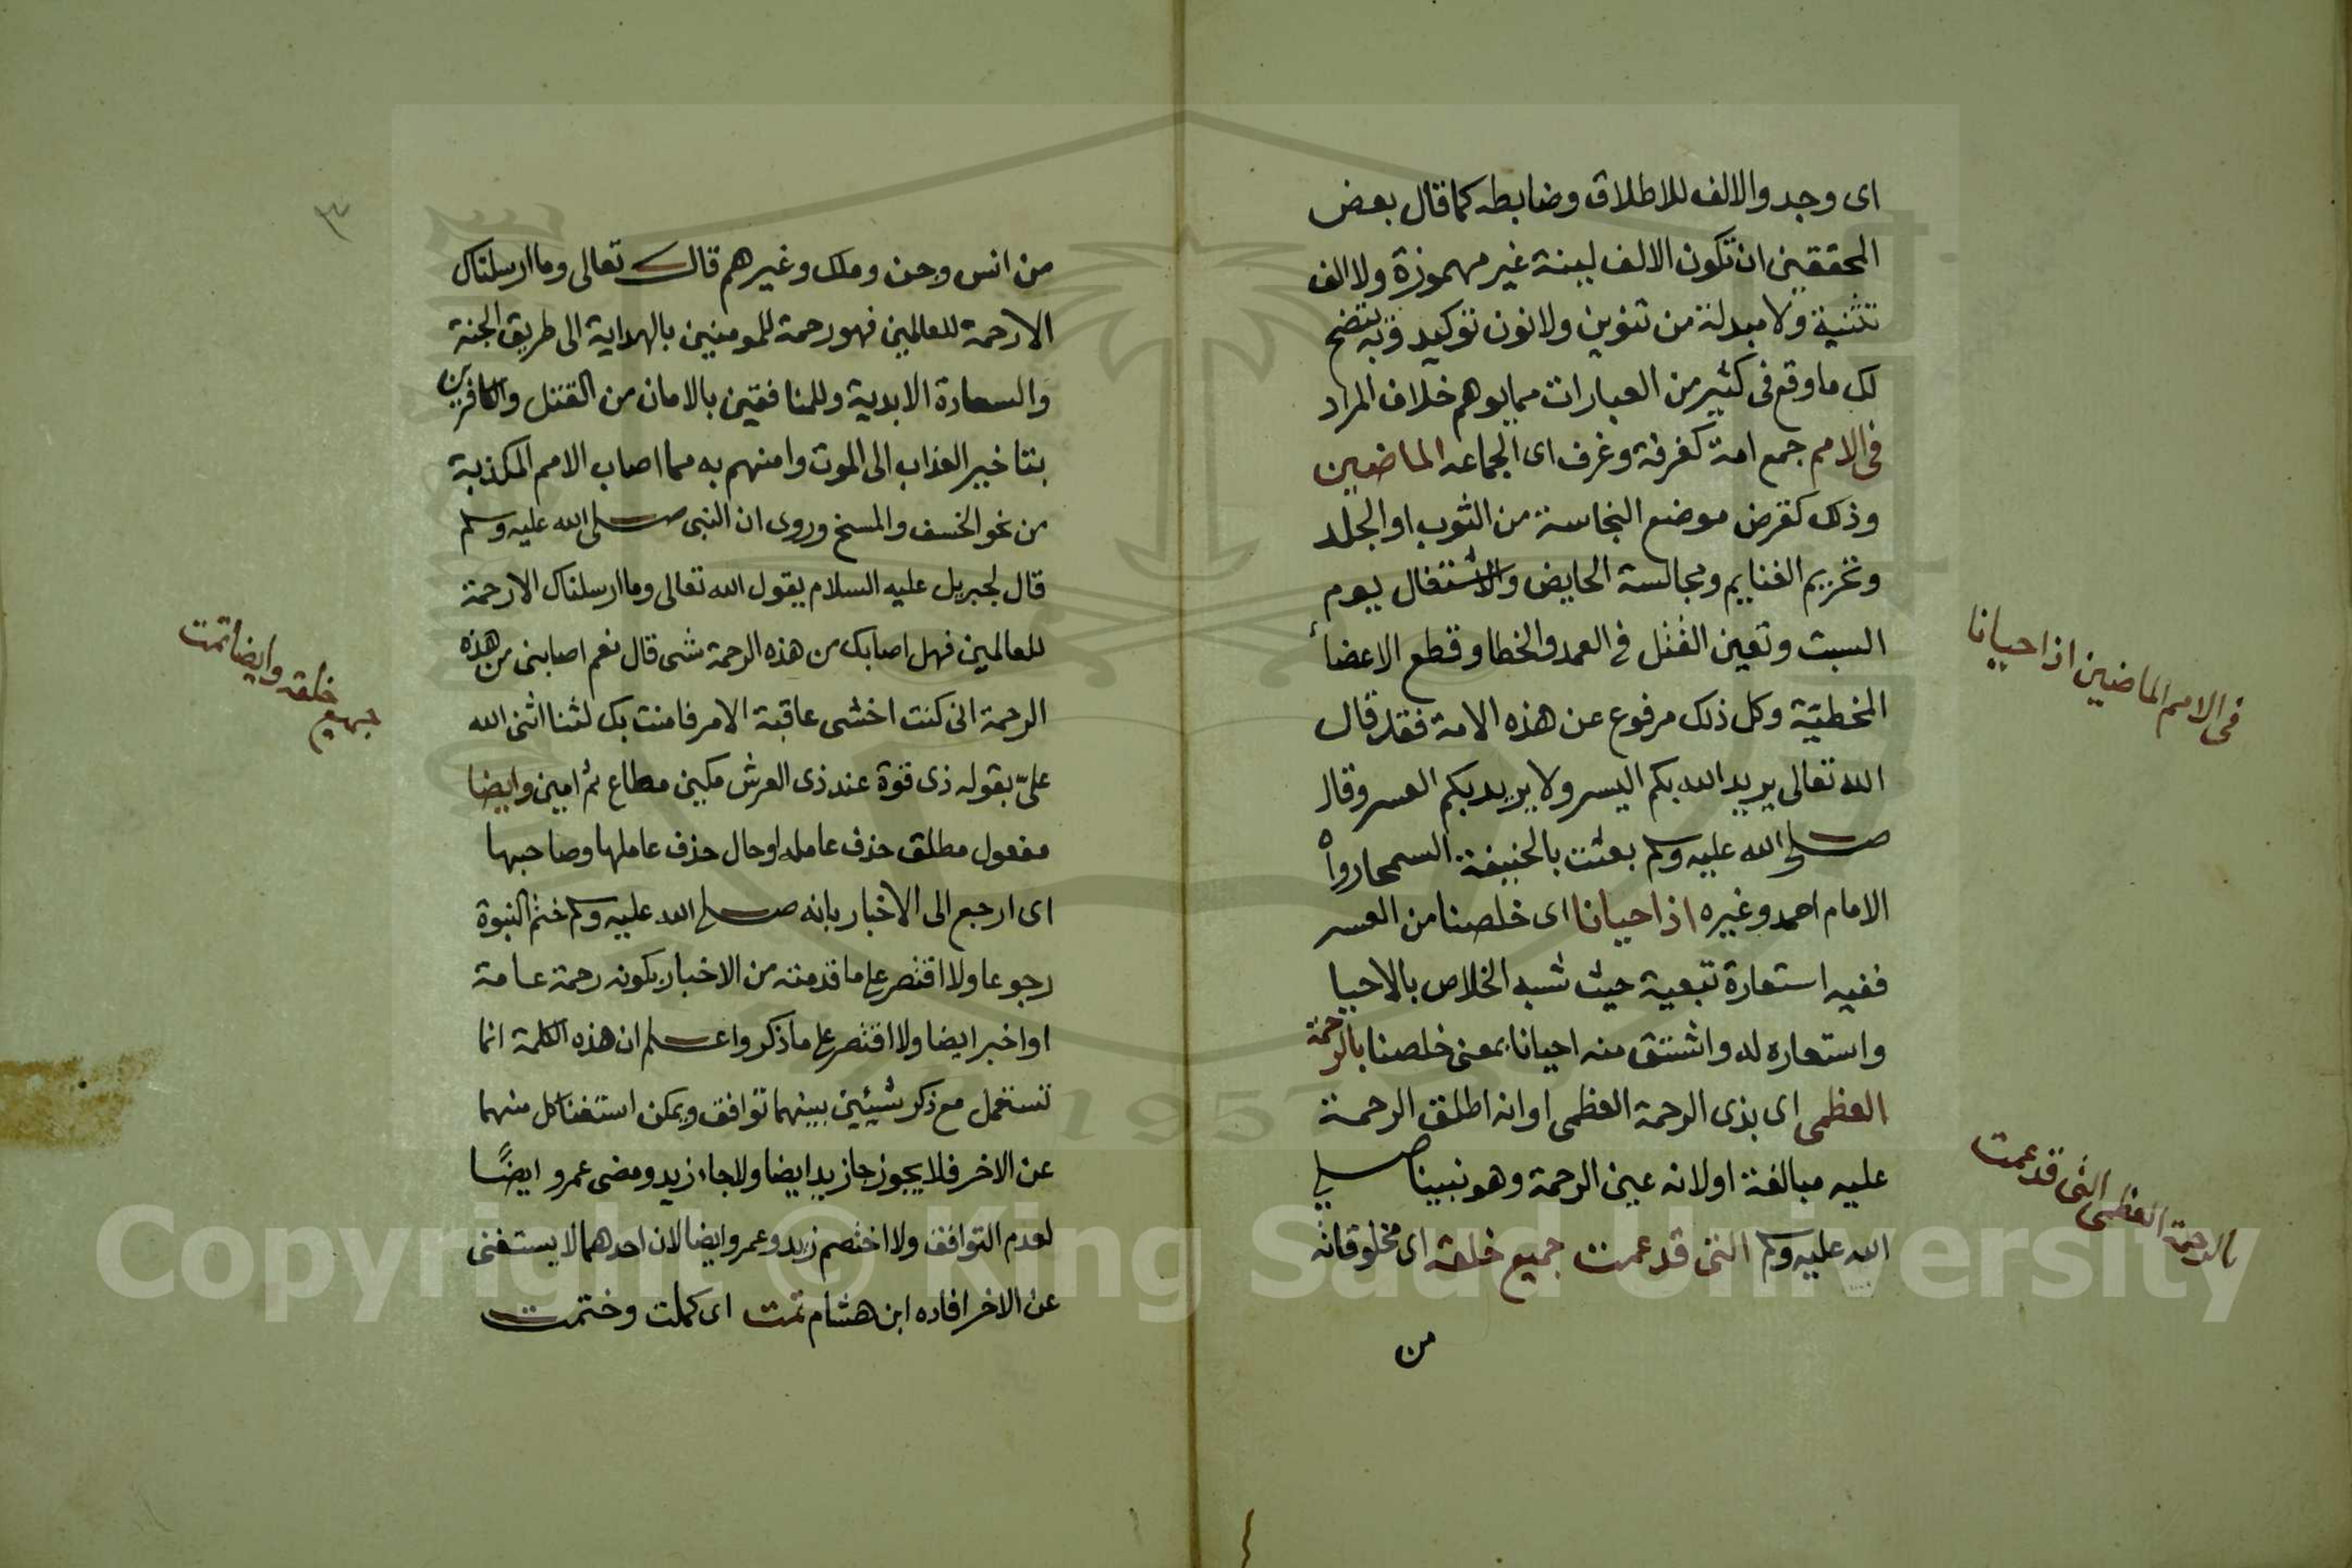 اى وجد والالف للاطلاق وضابطه كما قال بعض
المحققين ان تكون الالف لينة غير مهموزة ولا الف
تثنية ولا مبدلة من تنوين ولا نون توكيد وبه يتضح
لك ما وقع فى كثير من العبارات مما يوهم خلاف المراد
فى الامم جمع امة كغرفة وغرف اى الجماعه الماضين
وذلك كقرض موضع النجاسة من الثوب او الجلد
وتحريم الغنايم ومجالسة الحايض والاشتغال يوم
السبت وتعين القتل فى العمد والخطا وقطع الاعضاء
المخطية وكل ذلك مرفوع عن هذه الامة فقد قال
الله تعالى يريد الله بكم اليسر ولا يريد بكم العسر وقال
صلى الله عليه وسلم بعثت بالحنيفة السمحا رواه
الامام احمد وغيره اذ احيانا اى خلصنا من العسر
ففيه استعارة تبعية حيث شبه الخلاص بالاحيا
واستعاره له واشتق منه احيانا بمعنى خلصنا بالرحمة
العظمى اى بذى الرحمة العظمى او انه اطلق الرحمة
عليه مبالغة او لانه عين الرحمة وهو نبينا صلى
الله عليه وسلم التى قد عمت جميع خلقه اى مخلوقاته
من
فى الامم الماضين اذ احيانا
بالرحمة العظمى التى قد عمت
٣
من انس وجن وملك وغيرهم قال تعالى وما ارسلناك
الا رحمة للعالمين فهو رحمة للمومنين بالهداية الى طريق الجنة
والسعادة الابدية وللمنافقين بالامان من القتل والكافرين
بتاخير العذاب الى الموت وامنهم به مما اصاب الامم المكذبة
من نحو الخسف والمسخ وروى ان النبى صلى الله عليه وسلم
قال لجبريل عليه السلام يقول الله تعالى وما ارسلناك الا رحمة
للعالمين فهل اصابك من هذه الرحمة شى قال نعم اصابنى من هذه
الرحمة انى كنت اخشى عاقبة الامر فامنت بك لثنا اثنى الله
علىّ بقوله ذى قوة عند ذى العرش مكين مطاع ثم امين وايضا
مفعول مطلق حذف عامله او حال حذف عاملها وصاحبها
اى ارجع الى الاخبار بانه صلى الله عليه وسلم ختم النبوة
رجوعا ولا اقتصر على ما قدمته من الاخبار بكونه رحمة عامة
او اخبر ايضا ولا اقتصر على ما ذكر واعلم ان هذه الكلمة انما
تستعمل مع ذكر شيئين بينهما توافق ويمكن استغنا كل منهما
عن الاخر فلا يجوز جا زيد ايضا ولا جاء زيد ومضى عمرو ايضًا
لعدم التوافق ولا اختصم زيد وعمرو ايضا لان احدهما لا يستغنى
عن الاخر افاده ابن هشام تمت اى كملت وختمت
جميع خلقه وايضا تمت
Copyright © King Saud University
1957